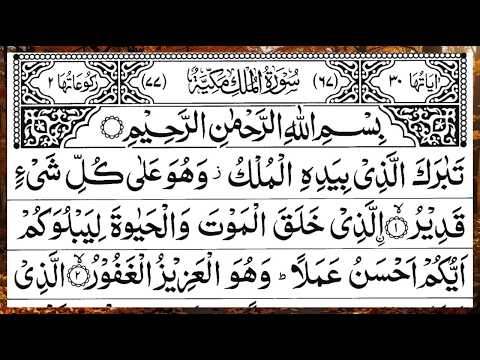 اٰیَاتُهَا ۳۰ (۶۷) سُوْرَةُ الْمُلْكِ مَكِّیَّةٌ (۷۷) رُكُوْعَاتُهَا ۲
بِسْمِ اللّٰهِ الرَّحْمٰنِ الرَّحِیْمِ
تَبٰرَكَ الَّذِیْ بِیَدِهِ الْمُلْكُ ؗ وَهُوَ عَلٰی كُلِّ شَیْءٍ
قَدِیْرُ ۙ﴿۱﴾ اِۨلَّذِیْ خَلَقَ الْمَوْتَ وَالْحَیٰوةَ لِیَبْلُوَكُمْ
اَیُّكُمْ اَحْسَنُ عَمَلًا ؕ وَهُوَ الْعَزِیْزُ الْغَفُوْرُ ۙ﴿۲﴾ الَّذِیْ